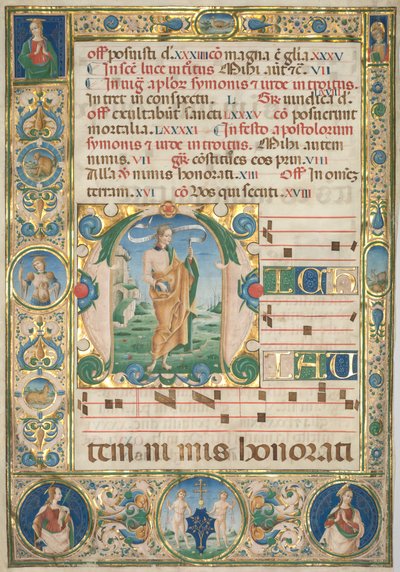 posuisti d. XXXIII cō magna ē glīa XXXV
In scē luce introitus Mihi aut ē. VII
symonis & iude introitus.
In tret in conspectu L Gr. uindica d. LXXII
off exultabūt sancti LXXXV cō posuerunt
mortalia. LXXXXI In festo apostolorum
symonis & iude introitus. Mihi autem
nimis. VII gr. cōstitues eos prin. VIII
Alla nimis honorati. XIII Off In omēz
terram. XVI cō Vos qui secuti. XVIII
M ICHI
I AU
tem ni mis honorati